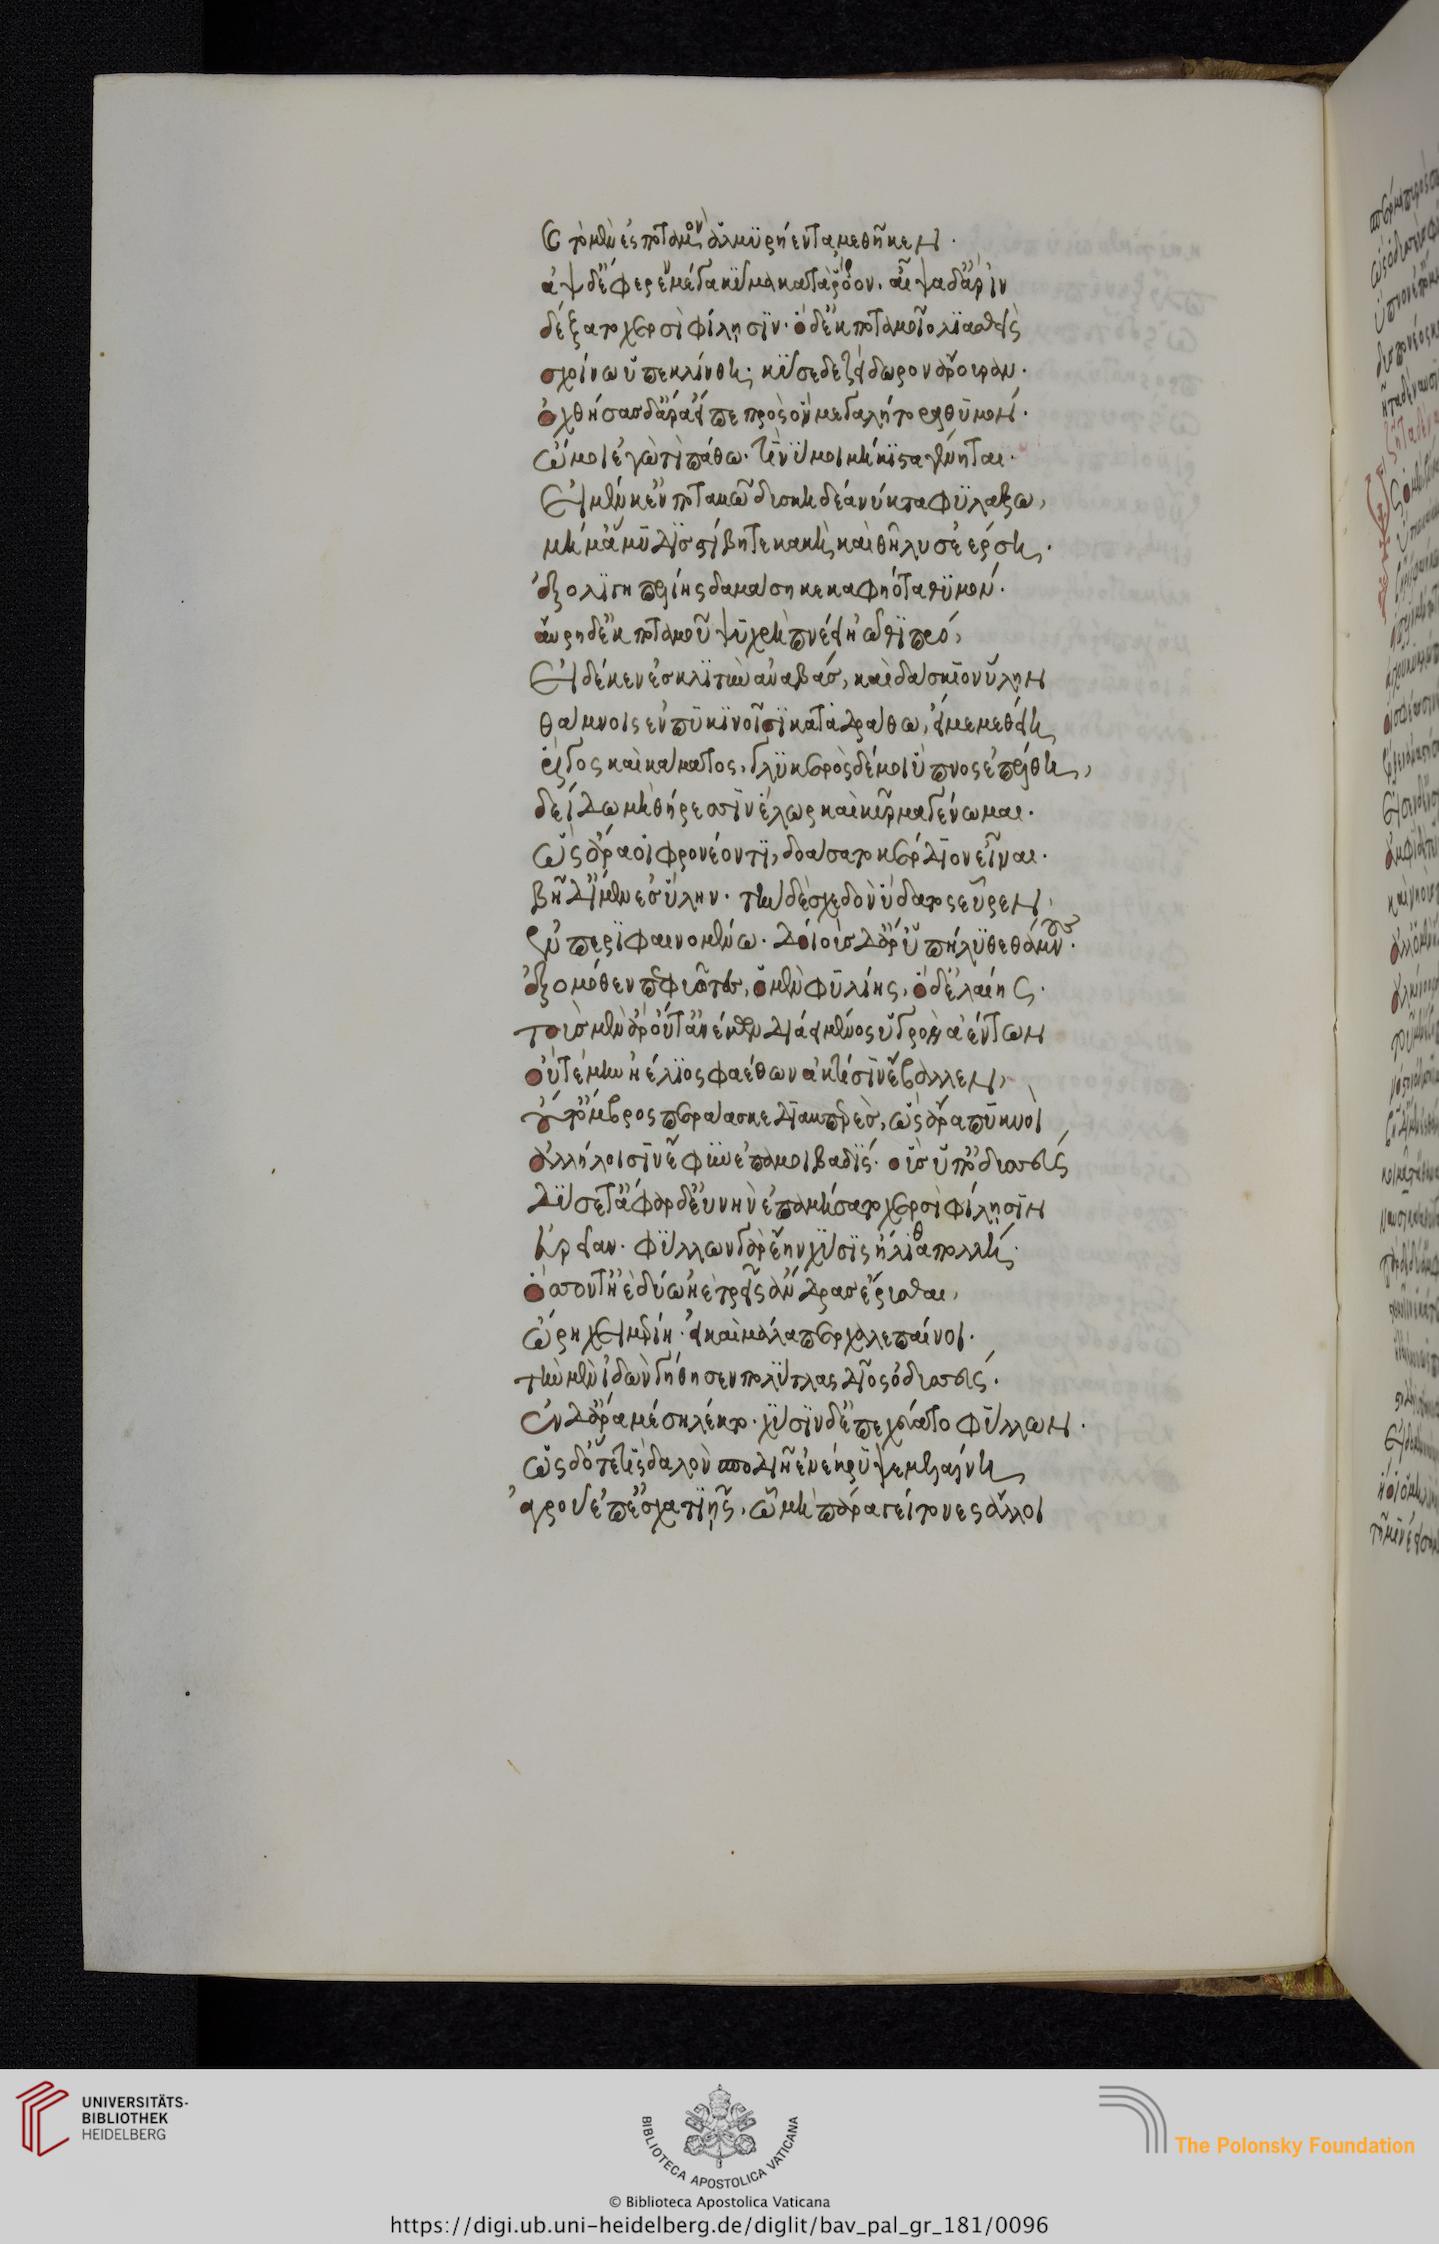 καὶ τὸ μὲν ἐς ποταμὸν ἁλμυρήεντα μεθῆκεν.
ἂψ δ' ἔφερεν μέγα κῦμα κατὰ ῥόον. αἶψα δ' ἄρ' ἰνὼ
δέξατο χερσὶ φίλησιν. ὁ δ' ἐκ ποταμοῖο λιασθεὶς
σχοίνω ὑπεκλίνθη. κύσε δὲ ζείδωρον ἄρουραν.
ὀχθήσας δ' ἄρα εἶπε πρὸς ὃν μεγαλήτορα θυμόν.
ὤμοι ἐγὼ τί πάθω. τί νύ μοι μήκιστα γένηται.
εἰ μέν κεν ποταμῶ δυσκηδέα νύκτα φυλάξω,
μή μ' ἄμυδις στίβη τε κακὴ καὶ θῆλυς ἐέρση.
ἐξ ὀλιγηπελίης δαμάση κεκαφηότα θυμόν.
αὔρη δ' ἐκ ποταμοῦ ψυχρὴ πνέει ἠῶθι πρό,
εἰ δέ κεν ἐς κλιτὺν ἀναβὰς, καὶ δάσκιον ὕλην
θάμνοις ἐν πυκινοῖσι καταδράθω, εἴ με μεθείη
ῥῖγος καὶ κάματος, γλυκερὸς δέ μοι ὕπνος ἐπέλθη,
δείδω μὴ θήρεσσιν ἕλωρ καὶ κύρμα γένωμαι.
ὣς ἄρα οἱ φρονέοντι, δοάσσατο κέρδιον εἶναι.
βῆ δ' ἴμεν ἐς ὕλην. τὴν δὲ σχεδὸν ὕδατος εὗρεν
ἐν περιφαινομένω. δοιοὺς δ' ἄρ' ὑπήλυθε θάμνους.
ἐξ ὁμόθεν πεφυῶτας, ὁ μὲν φυλίης, ὁ δ' ἐλαίης.
τοὺς μὲν ἄρ' οὔτ' ἀνέμων διάει μένος ὑγρὸν ἀέντων
οὔτέ μιν ἠέλιος φαέθων ἀκτῖσιν ἔβαλλεν,
οὔτ' ὄμβρος περάασκε διαμπερὲς, ὣς ἄρα πυκνοὶ
ἀλλήλοισιν ἔφυν ἐπαμοιβαδίς. οὓς ὑπ' ὀδυσσεύς
δύσετ' ἄφαρ δ' εὐνὴν ἐπαμήσατο χερσὶ φίλησιν
εὐρεῖαν. φύλλων γὰρ ἔην χύσις ἤλιθα πολλή.
ὅσσον τ' ἠὲ δύω ἠὲ τρεῖς ἄνδρας ἔρυσθαι,
ὥρη χειμερίη. εἰ καὶ μάλα περ χαλεπαίνοι.
τὴν μὲν ἰδὼν γήθησεν πολύτλας δῖος ὀδυσσεύς.
ἐν δ' ἄρα μέση λέκτο. χύσιν δ' ἐπεχεύατο φύλλων.
ὡς δ' ὅτε τὶς δαλὸν σποδιῆ ἐνέκρυψε μελαίνη
ἀγροῦ ἐπ' ἐσχατιῆς, ὧ μὴ πάρα γείτονες ἄλλοι
UNIVERSITÄTS-
BIBLIOTHEK
HEIDELBERG
BIBLIOTECA APOSTOLICA VATICANA
The Polonsky Foundation
© Biblioteca Apostolica Vaticana
https://digi.ub.uni-heidelberg.de/diglit/bav_pal_gr_181/0096